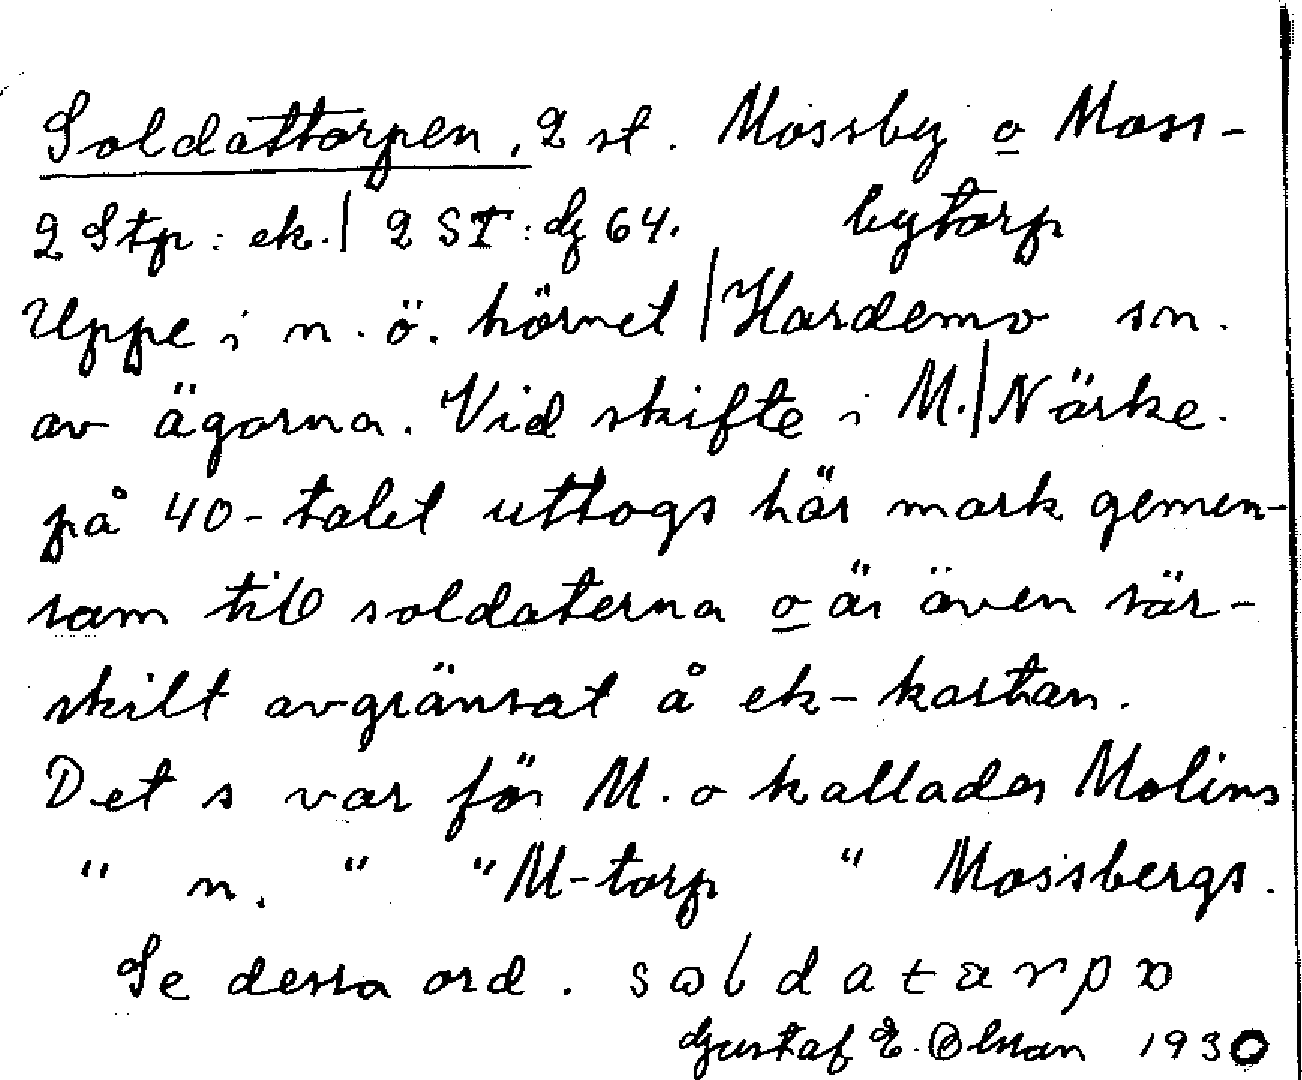 Soldattorpen, 2 st. Mossby o Moss-
2 Stp: ek. | 2 ST: dz 64. bytorp
Uppe i n. ö. hörnet | Hardemo sn.
av ägorna. Vid skifte i M. | Närke.
på 40-talet uttogs här mark gemen-
sam till soldaterna o är även sär-
skilt avgränsat å ek-kartan.
Det s var för M. o kallades Molins
" n. " " M-torp " Mossbergs.
Se dessa ord. soldatarpo
Gustaf E. Olsson 1930